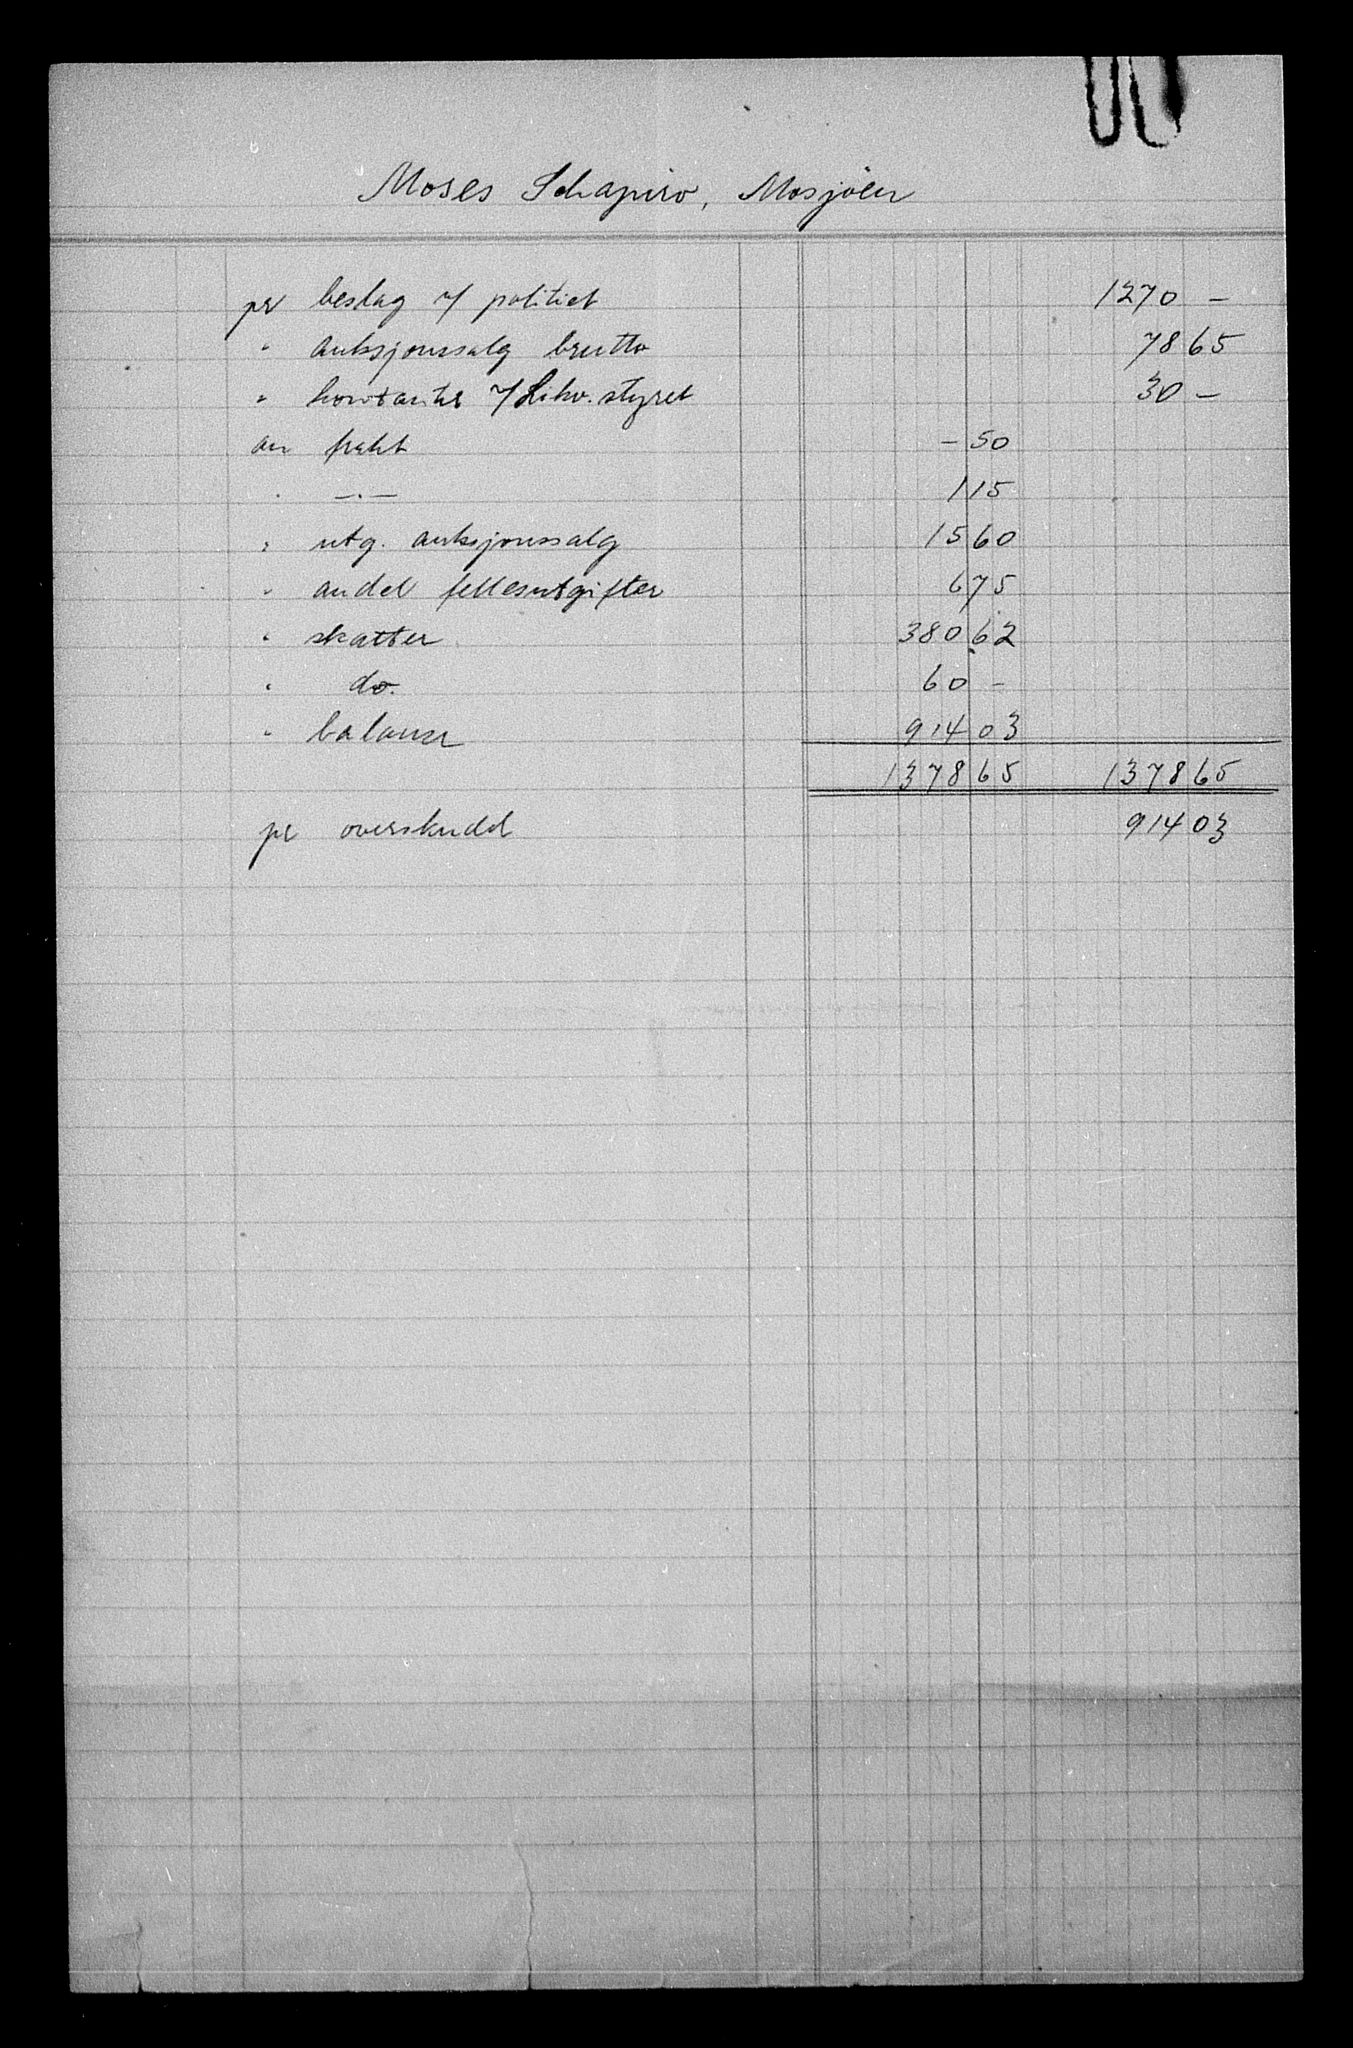 Moses Schapiro, Mosjöen
pr beslag v/ politiet 1270 –
" auksjonssalg brutto 78 65
" kontanter v/ Likv. styret 30 –
an frakt – 50
" –"– 1 15
" utg. auksjonssalg 15 60
" andel fellesutgifter 6 75
" skatter 380 62
" do. 60 –
" balanse 914 03
1378 65 1378 65
pr overskudd 914 03